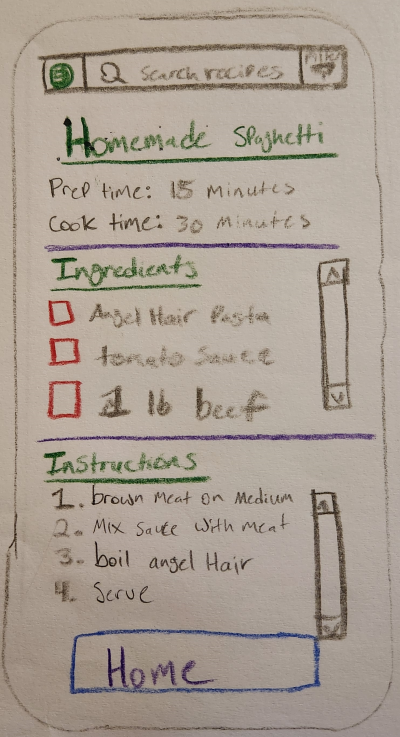 Search recipes Filter
Homemade Spaghetti
Prep time: 15 Minutes
Cook time: 30 Minutes
Ingredients
Angel Hair Pasta
tomato Sauce
1 lb beef
Instructions
1. brown Meat on Medium
2. Mix Sauce with meat
3. boil angel Hair
4. Serve
Home